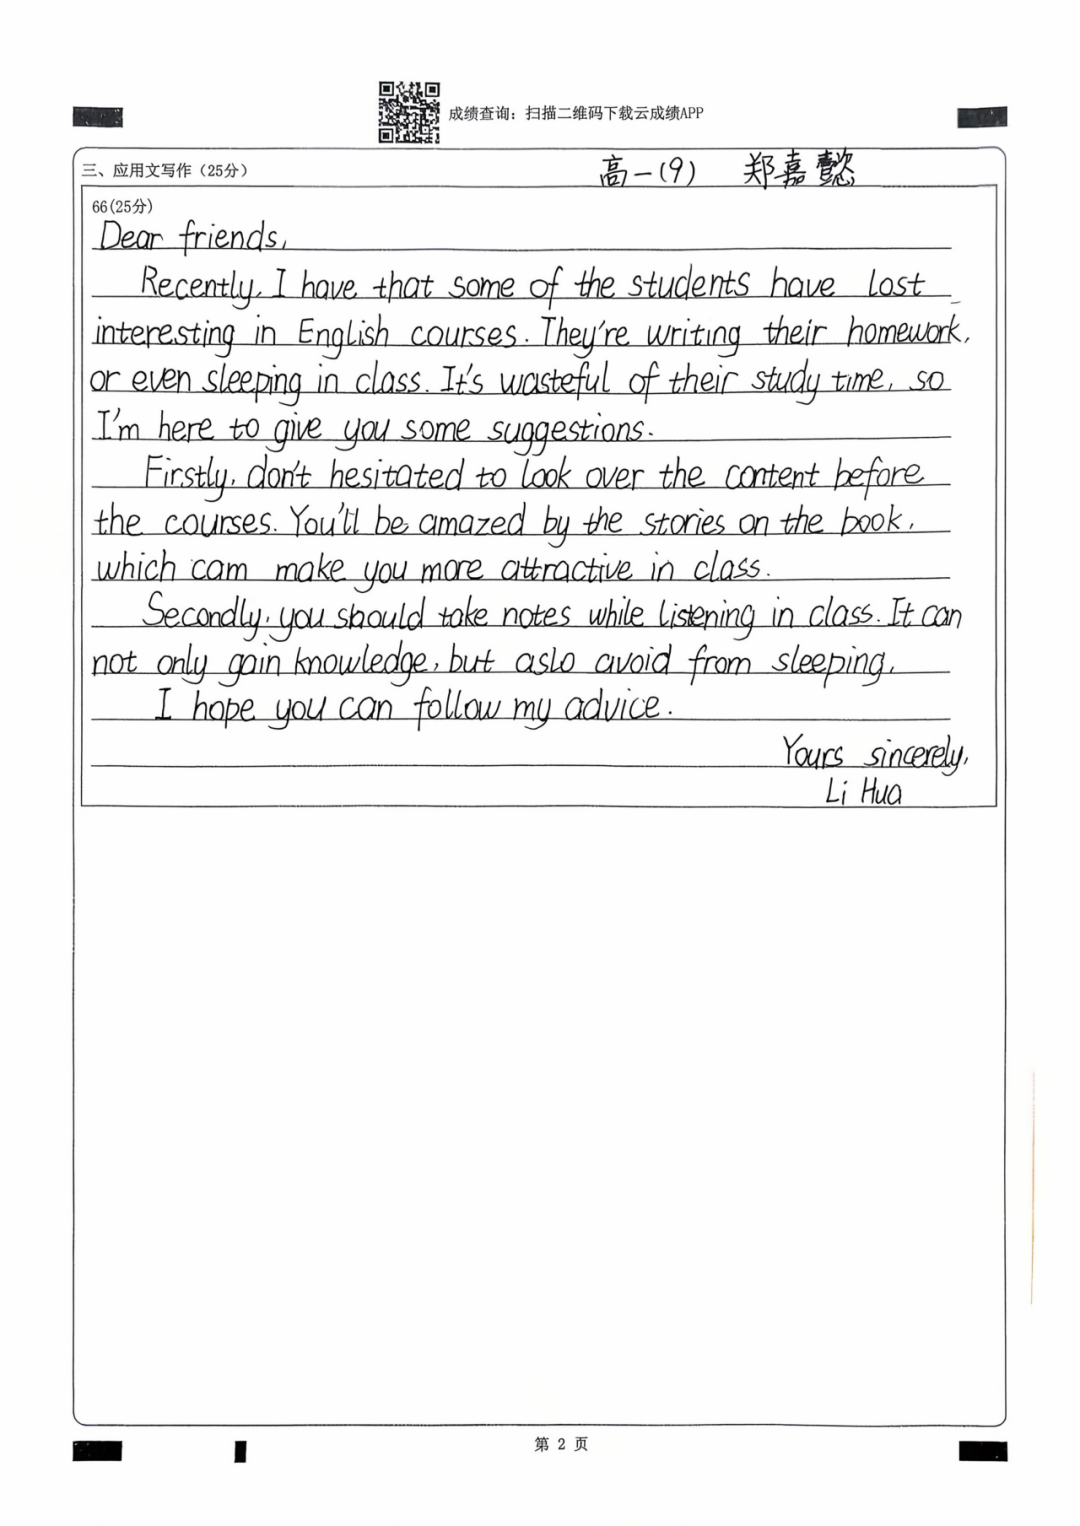 成绩查询：扫描二维码下载云成绩APP
三、应用文写作（25分）
高一(9) 郑嘉懿
66(25分)
Dear friends,
Recently, I have that some of the students have lost
interesting in English courses. They're writing their homework,
or even sleeping in class. It's wasteful of their study time, so
I'm here to give you some suggestions.
Firstly, don't hesitated to look over the content before
the courses. You'll be amazed by the stories on the book,
which cam make you more attractive in class.
Secondly, you should take notes while listening in class. It can
not only gain knowledge, but aslo avoid from sleeping.
I hope you can follow my advice.
Yours sincerely,
Li Hua
第 2 页